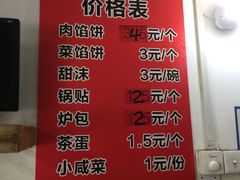 价格表
肉馅饼 3.5元/个
菜馅饼 3元/个
甜沫 3元/碗
锅贴 1.25元/个
炉包 1.25元/个
茶蛋 1.5元/个
小咸菜 1元/份